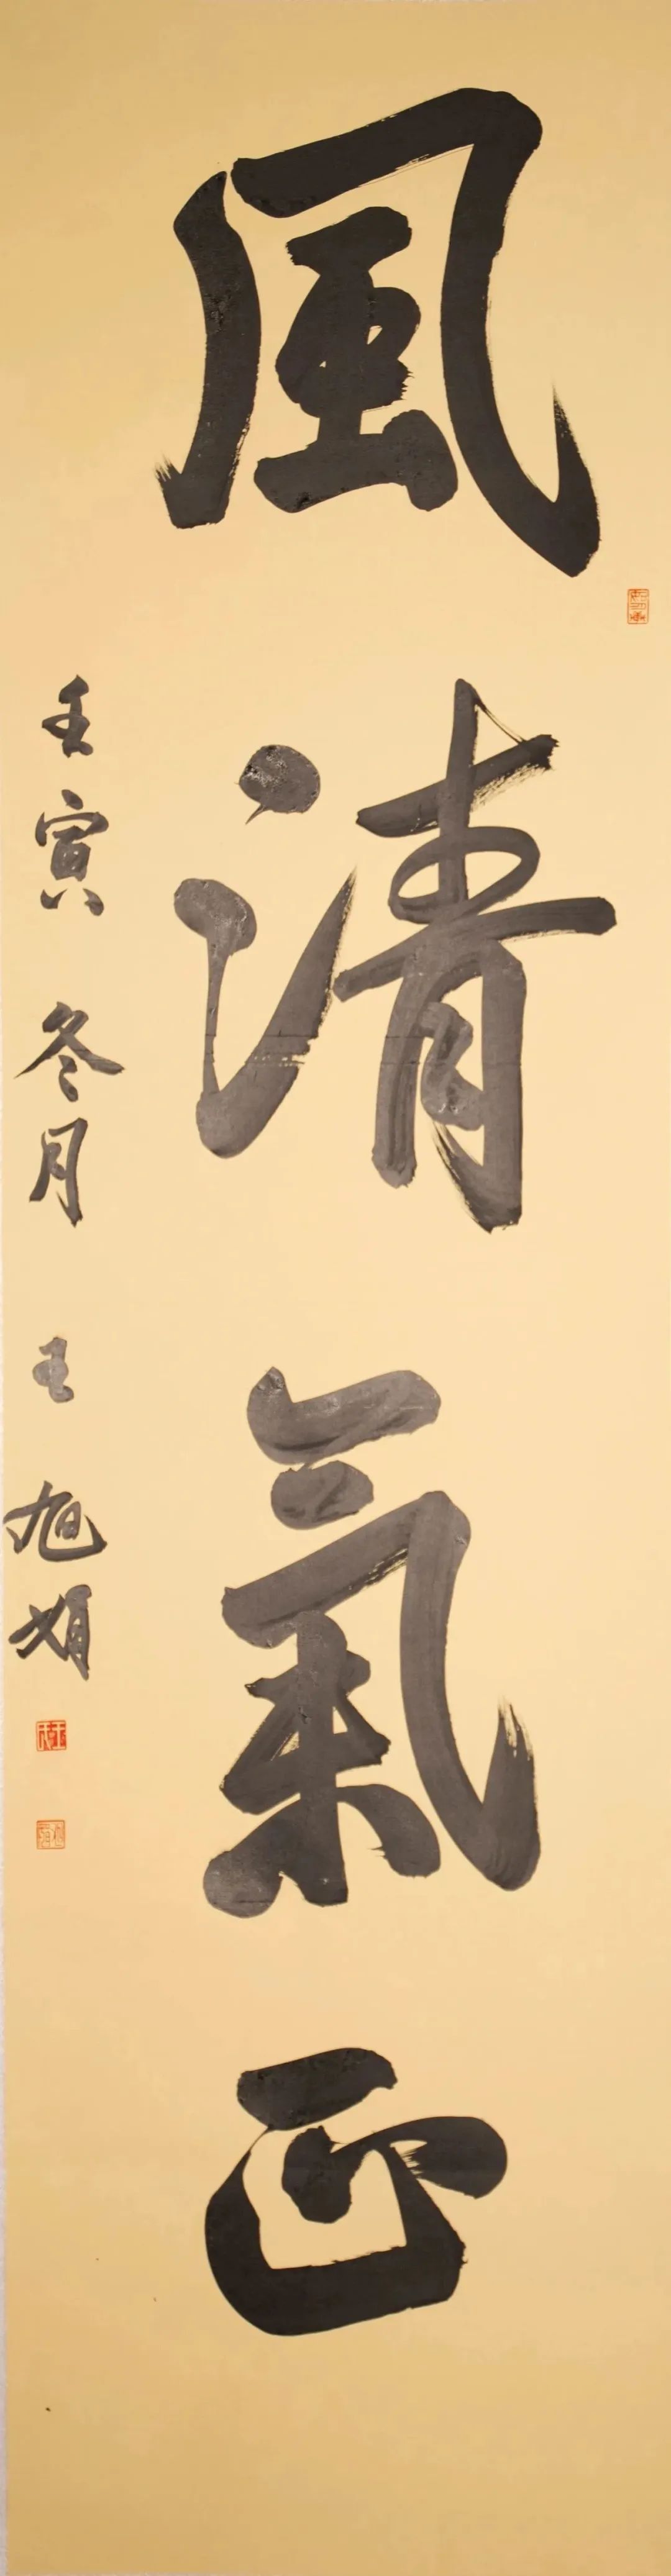 風清氣正
壬寅冬月王旭娟